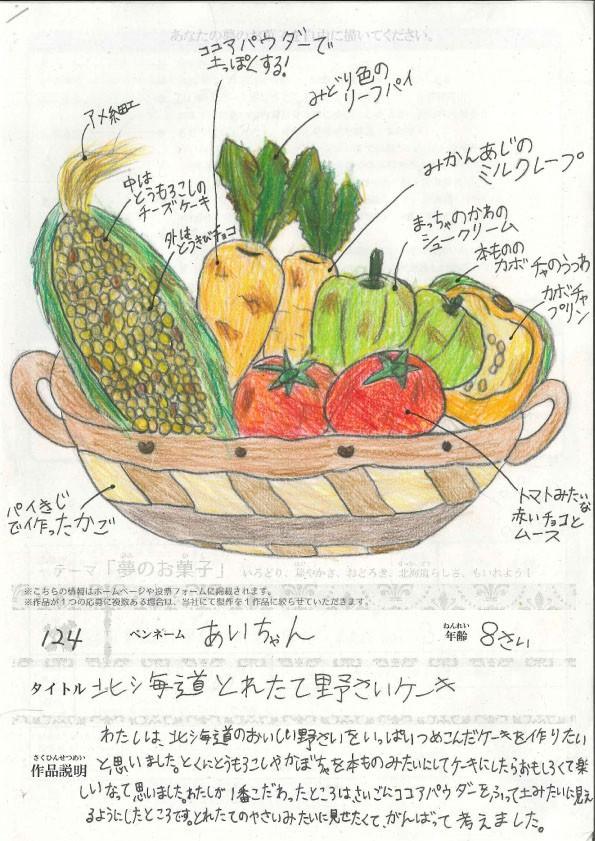 あなたの夢のお菓子を自由に描いてください。
ココアパウダーで
土っぽくする!
みどり色の
リーフパイ
アメ細工
みかんあじの
ミルクレープ
中は
とうもろこしの
チーズケーキ
まっちゃのかわの
シュークリーム
外は
とうきびチョコ
本ものの
カボチャのうつわ
カボチャ
プリン
パイきじ
で作ったかご
トマトみたいな
赤いチョコと
ムース
テーマ「夢のお菓子」 いろどり、華やかさ、おどろき、北海道らしさ、もいれよう!
※こちらの情報はホームページや投票フォームに掲載されます。
※作品が1つの応募に複数ある場合は、当社にて製作を1作品に絞らせていただきます。
124 ペンネーム あいちゃん ねんれい 年齢 8さい
タイトル 北海道とれたて野さいケーキ
さくひんせつめい
作品説明
わたしは、北海道のおいしい野さいをいっぱいつめこんだケーキを作りたい
と思いました。とくにとうもろこしやかぼちゃを本ものみたいにしてケーキにしたらおもしろくて楽
しいなって思いました。わたしが1番こだわったところは、さいごにココアパウダーをふって土みたいに見え
るようにしたところです。とれたてのやさいみたいに見せたくて、がんばって考えました。